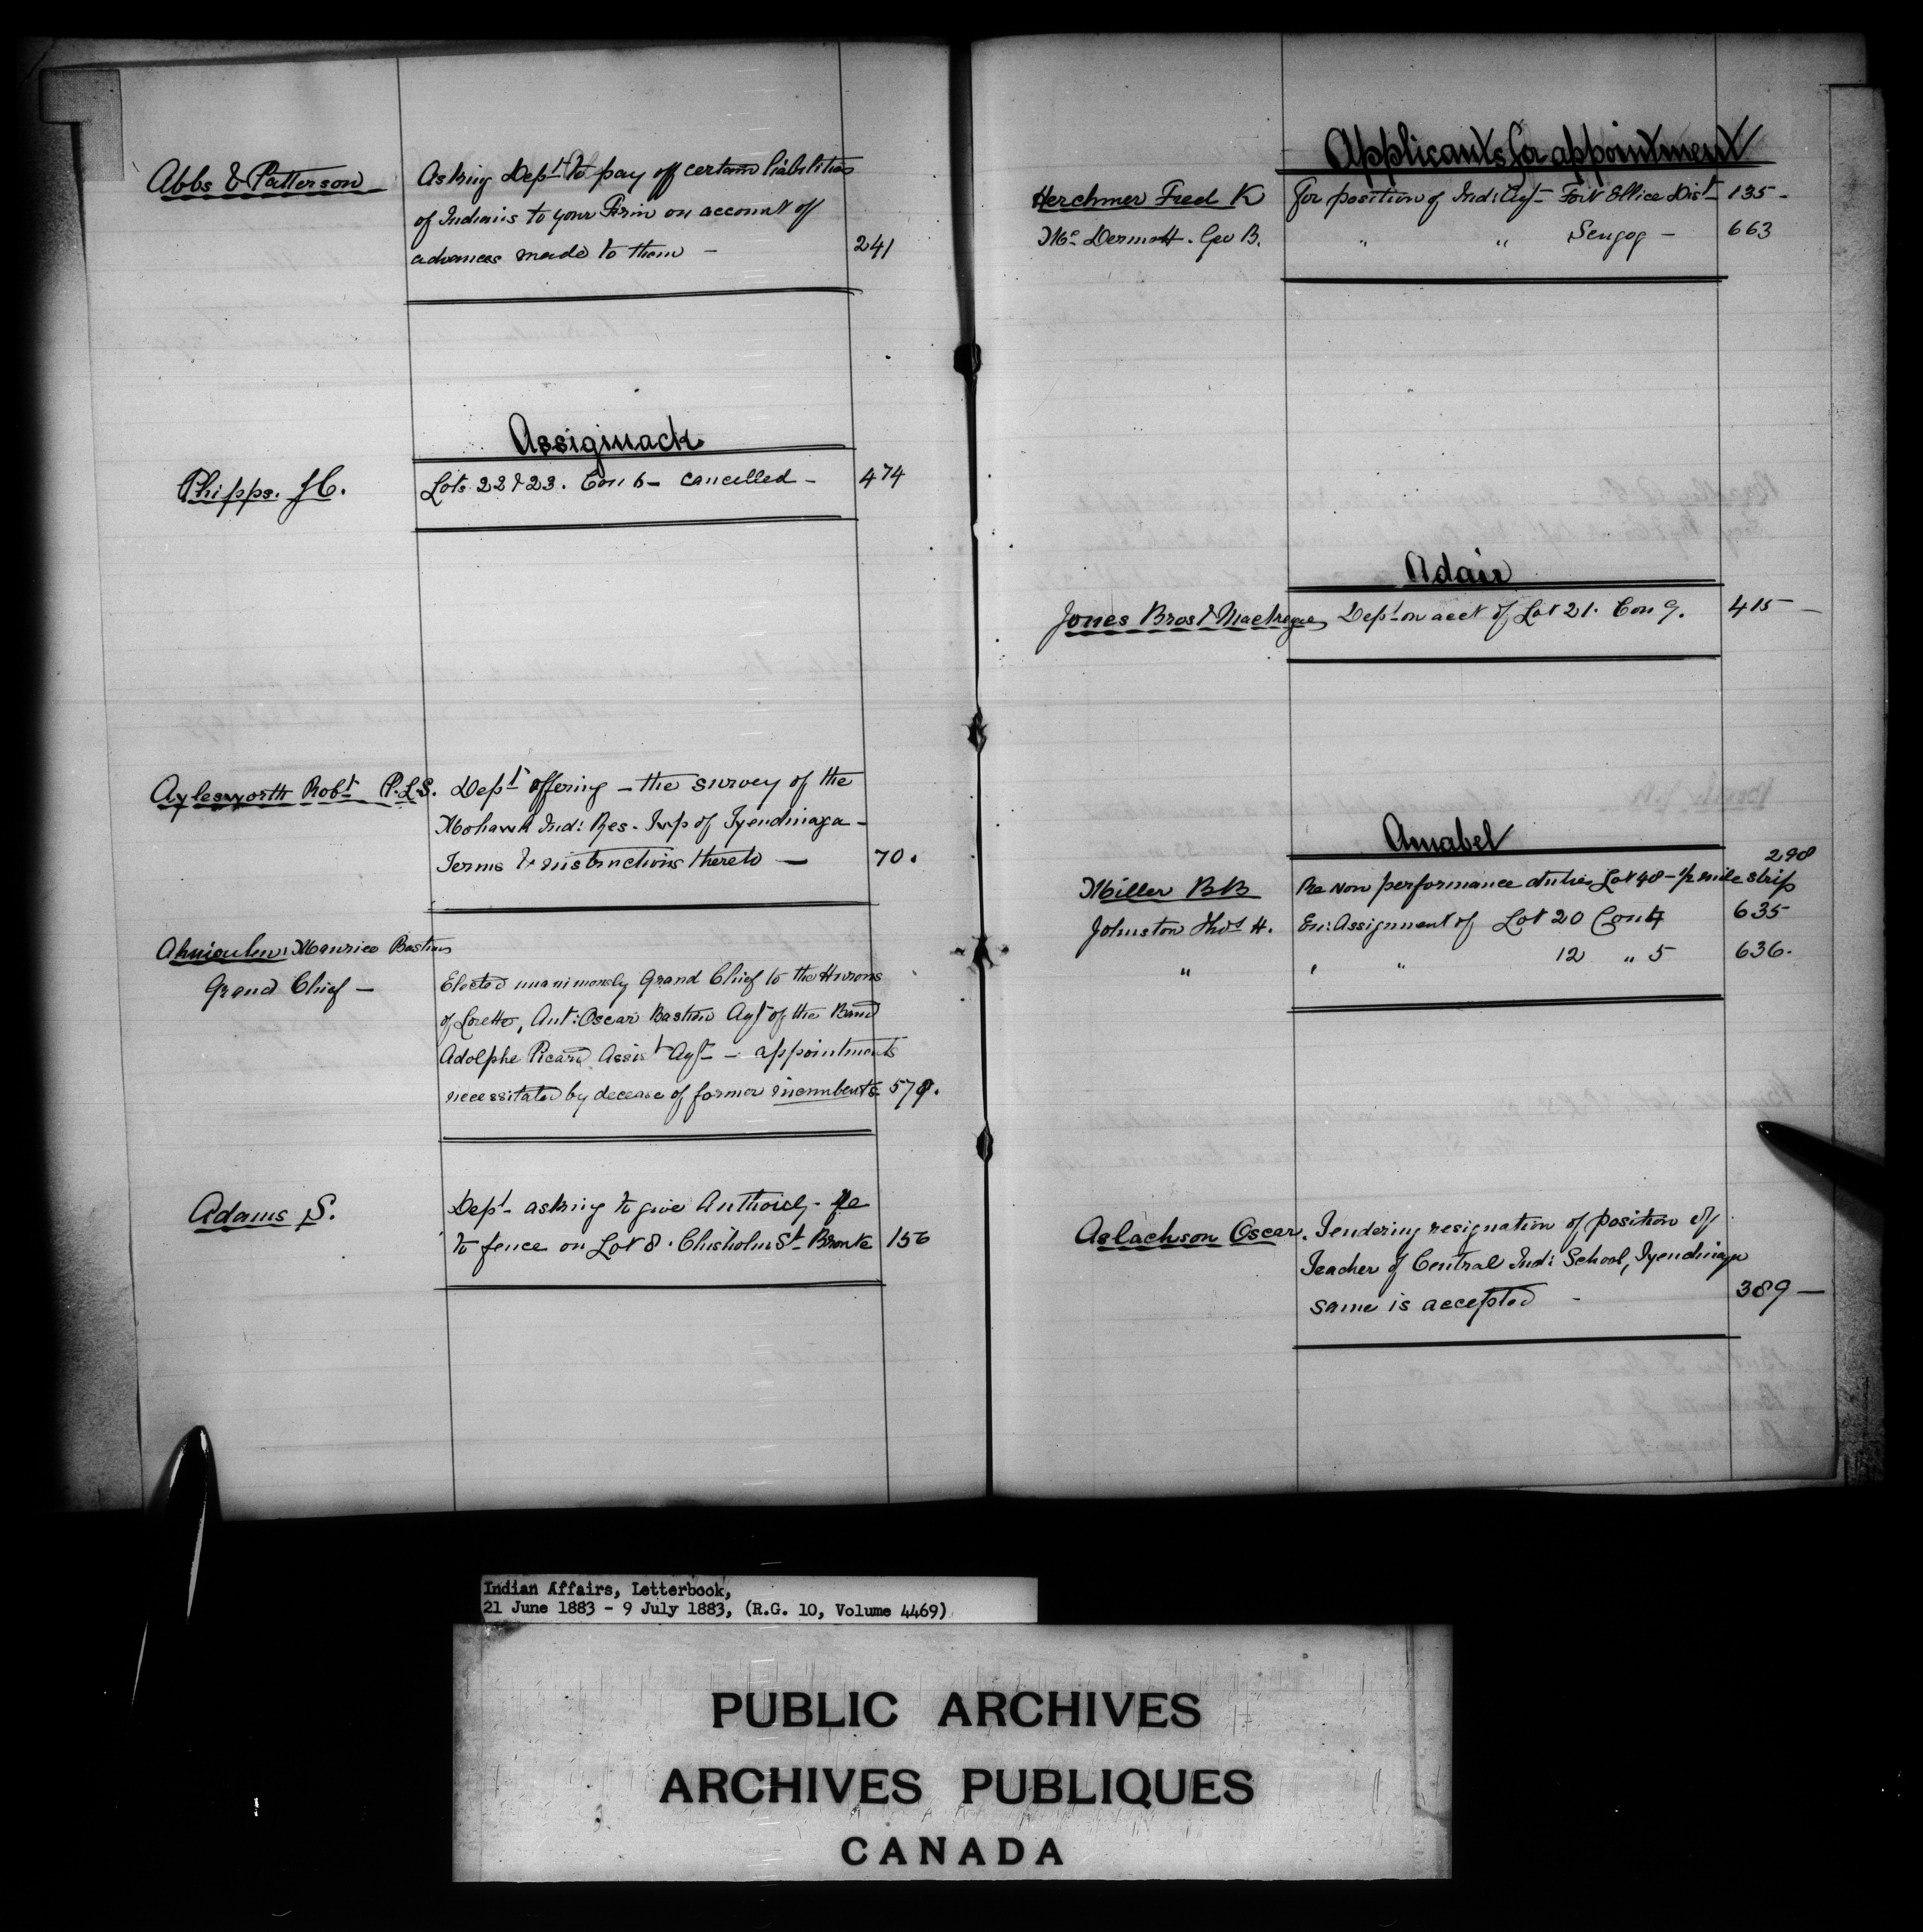 Abbs & Patterson Asking Dept to pay off certain liabilities
of Indians to your Firm on account of
advances made to them — 241
Assiginack
Phipps. J.C. Lots 22 & 23. Con 6 — cancelled — 474
Aylesworth Robt P.L.S. Dept offering — the survey of the
Mohawk Ind: Res. Twp of Tyendinaga —
Terms & instructions thereto — 70.
Maurice Bastien
Grand Chief — Elected unanimously Grand Chief to the Hurons
of Lorette, Ant: Oscar Bastien Agt of the Band
Adolphe Picard Assist Agt — appointments
necessitated by decease of former incumbents 579.
Adams S. Dept — asking to give Authority
to fence on Lot 8. Chisholm St Bronte 156
Applicants for appointment
Herchmer Fred K for position of Ind: Agt — Fort Ellice Dist — 135 —
Mc Dermott. Geo B. " " Scugog — 663
Adair
Jones Bros & Dept on acct of Lot 21. Con 9. 415 —
Amabel
298
Miller BB Re Non performance duties Lot 48 — ½ mile strip
Johnston Thos H. En: Assignment of Lot 20 Con 4 635
" " " 12 " 5 636.
Aslachson Oscar. Tendering resignation of position of
Teacher of Central Ind: School, Tyendinaga
same is accepted — 389 —
Indian Affairs, Letterbook,
21 June 1883 - 9 July 1883, (R.G. 10, Volume 4469)
PUBLIC ARCHIVES
ARCHIVES PUBLIQUES
CANADA